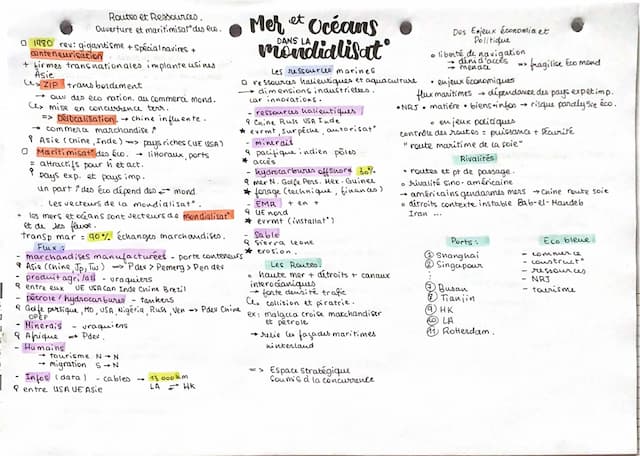 Routes et Ressources.
Ouverture et maritimisat° des éco.
1980 rev: gigantisme + spécialnavires +
conteneurisation
+ firmes transnationales implante usines
Asie
ZIP → transbordement
→ ouv des éco nation. au commerce mond.
→ mise en concurrence terr.
=> Délocalisation. → chine influente.
→ commerce marchandise ↗
Asie (Chine, Inde) => pays riches (UE USA)
Maritimisat° des éco. → littoraux, ports
= attractifs pour h et act.
pays exp. et pays imp.
un part° des éco dépend des mond
Les vecteurs de la mondialisat°.
+ les mers et océans sont vecteurs de mondialisat°
et de les flux.
transp mar = 90% échanges marchandises.
Flux:
- marchandises manufacturées - porte conteneurs
Asie (Chine, Jp, Tw) => Pdev > Pemerg > Pen dev
- produit agri/ali - vraquiers
entre eux UE USA Can Inde Chine Brézil
- pétrole/hydrocarbures - tankers
Golfe persique, MO, USA, Nigéria, Russ, Ven => Pdev Chine
OPEP
- Minerais - vraquiers
Afrique => Pdev.
- Humains
→ tourisme N → N
→ migration S → N
- Infos (data) - cables → 13 000km
LA ⇌ HK
entre USA UE Asie
Mer et Océans
DANS LA
mondialisat°
Les ressources marines
ressources halieutiques et aquaculture
→ dimensions industrielles.
car innovations.
- ressources halieutiques /
Chine Russ USA Inde
* evrmt, surpêche, autorisat°
- minerais
pacifique indien pôles
* accès
- hydrocarbures offshore 30%
mer N. Golfe Pers. Mex - Guinée
* forage (technique, finances)
- EMR + en +
UE nord
* evrmt (installat°)
- Sable
Sierra Leone
* erosion.
Les Routes:
haute mer + détroits + canaux
interocéaniques
→ forte densité trafic
collision et piraterie.
ex: malacca croise marchandises
et pétrole
→ relie les façades maritimes
hinterland
=> Espace stratégique
soumis à la concurrence
Des Enjeux économia et
Politique
liberté de navigation
→ déni d'accès => fragilise éco mond
menace
enjeux économiques
flux maritimes → dépendance des pays exp et imp.
→ NRJ • matière • biens + infos → risque paralysie éco.
enjeux politiques
contrôle des routes = puissance + sécurité
"route maritime de la soie"
Rivalités
• routes et pt de passage.
• rivalité sino-américaine
→ américains gendarmes mers → Chine route soie
• détroits contexte instable Bab-el-Mandeb
Iran ...
Ports:
① Shanghai
② Singapour
⋮
⑦ Busan
⑧ Tianjin
⑨ HK
⑩ LA
⑪ Rotterdam.
Eco bleue:
- commerce
- construct°
- ressources
- NRJ
- tourisme